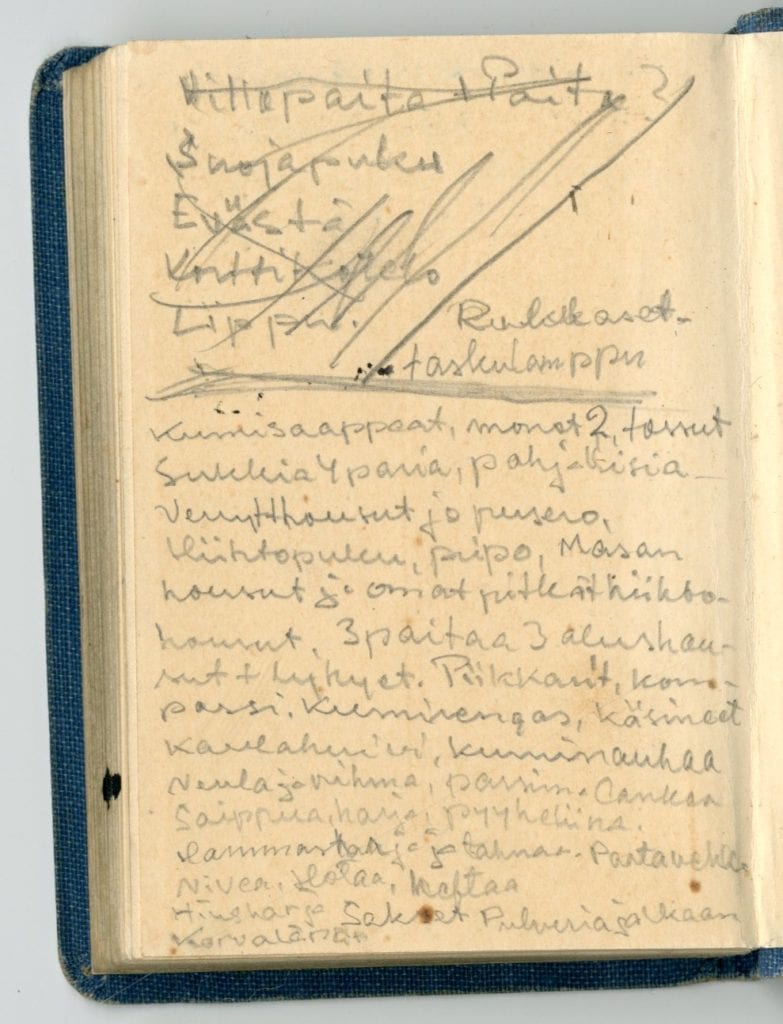 Villapaita + Paita ?
Suojapuku
Evästä
Korttikotelo
Lippu.
Rukkaset.
taskulamppu
Kumisaappaat, monot 2, tossut
Sukkia 4 paria, pohjallisia
Verytthousut ja pusero,
Hiihtopuku, pipo, Masan
housut ja omat pitkät hiihto-
housut. 3 paitaa 3 alushou-
sut + lyhyet. Piikkarit, kom-
passi. Kumirengas, käsineet
kaulahuivi, kuminauhaa
Neula ja rihma, Lankaa
Saippua, harja, pyyheliina.
Hammasharja ja tahnaa.
Nivea,
Hiusharja Sakset Pulveria jalkaan